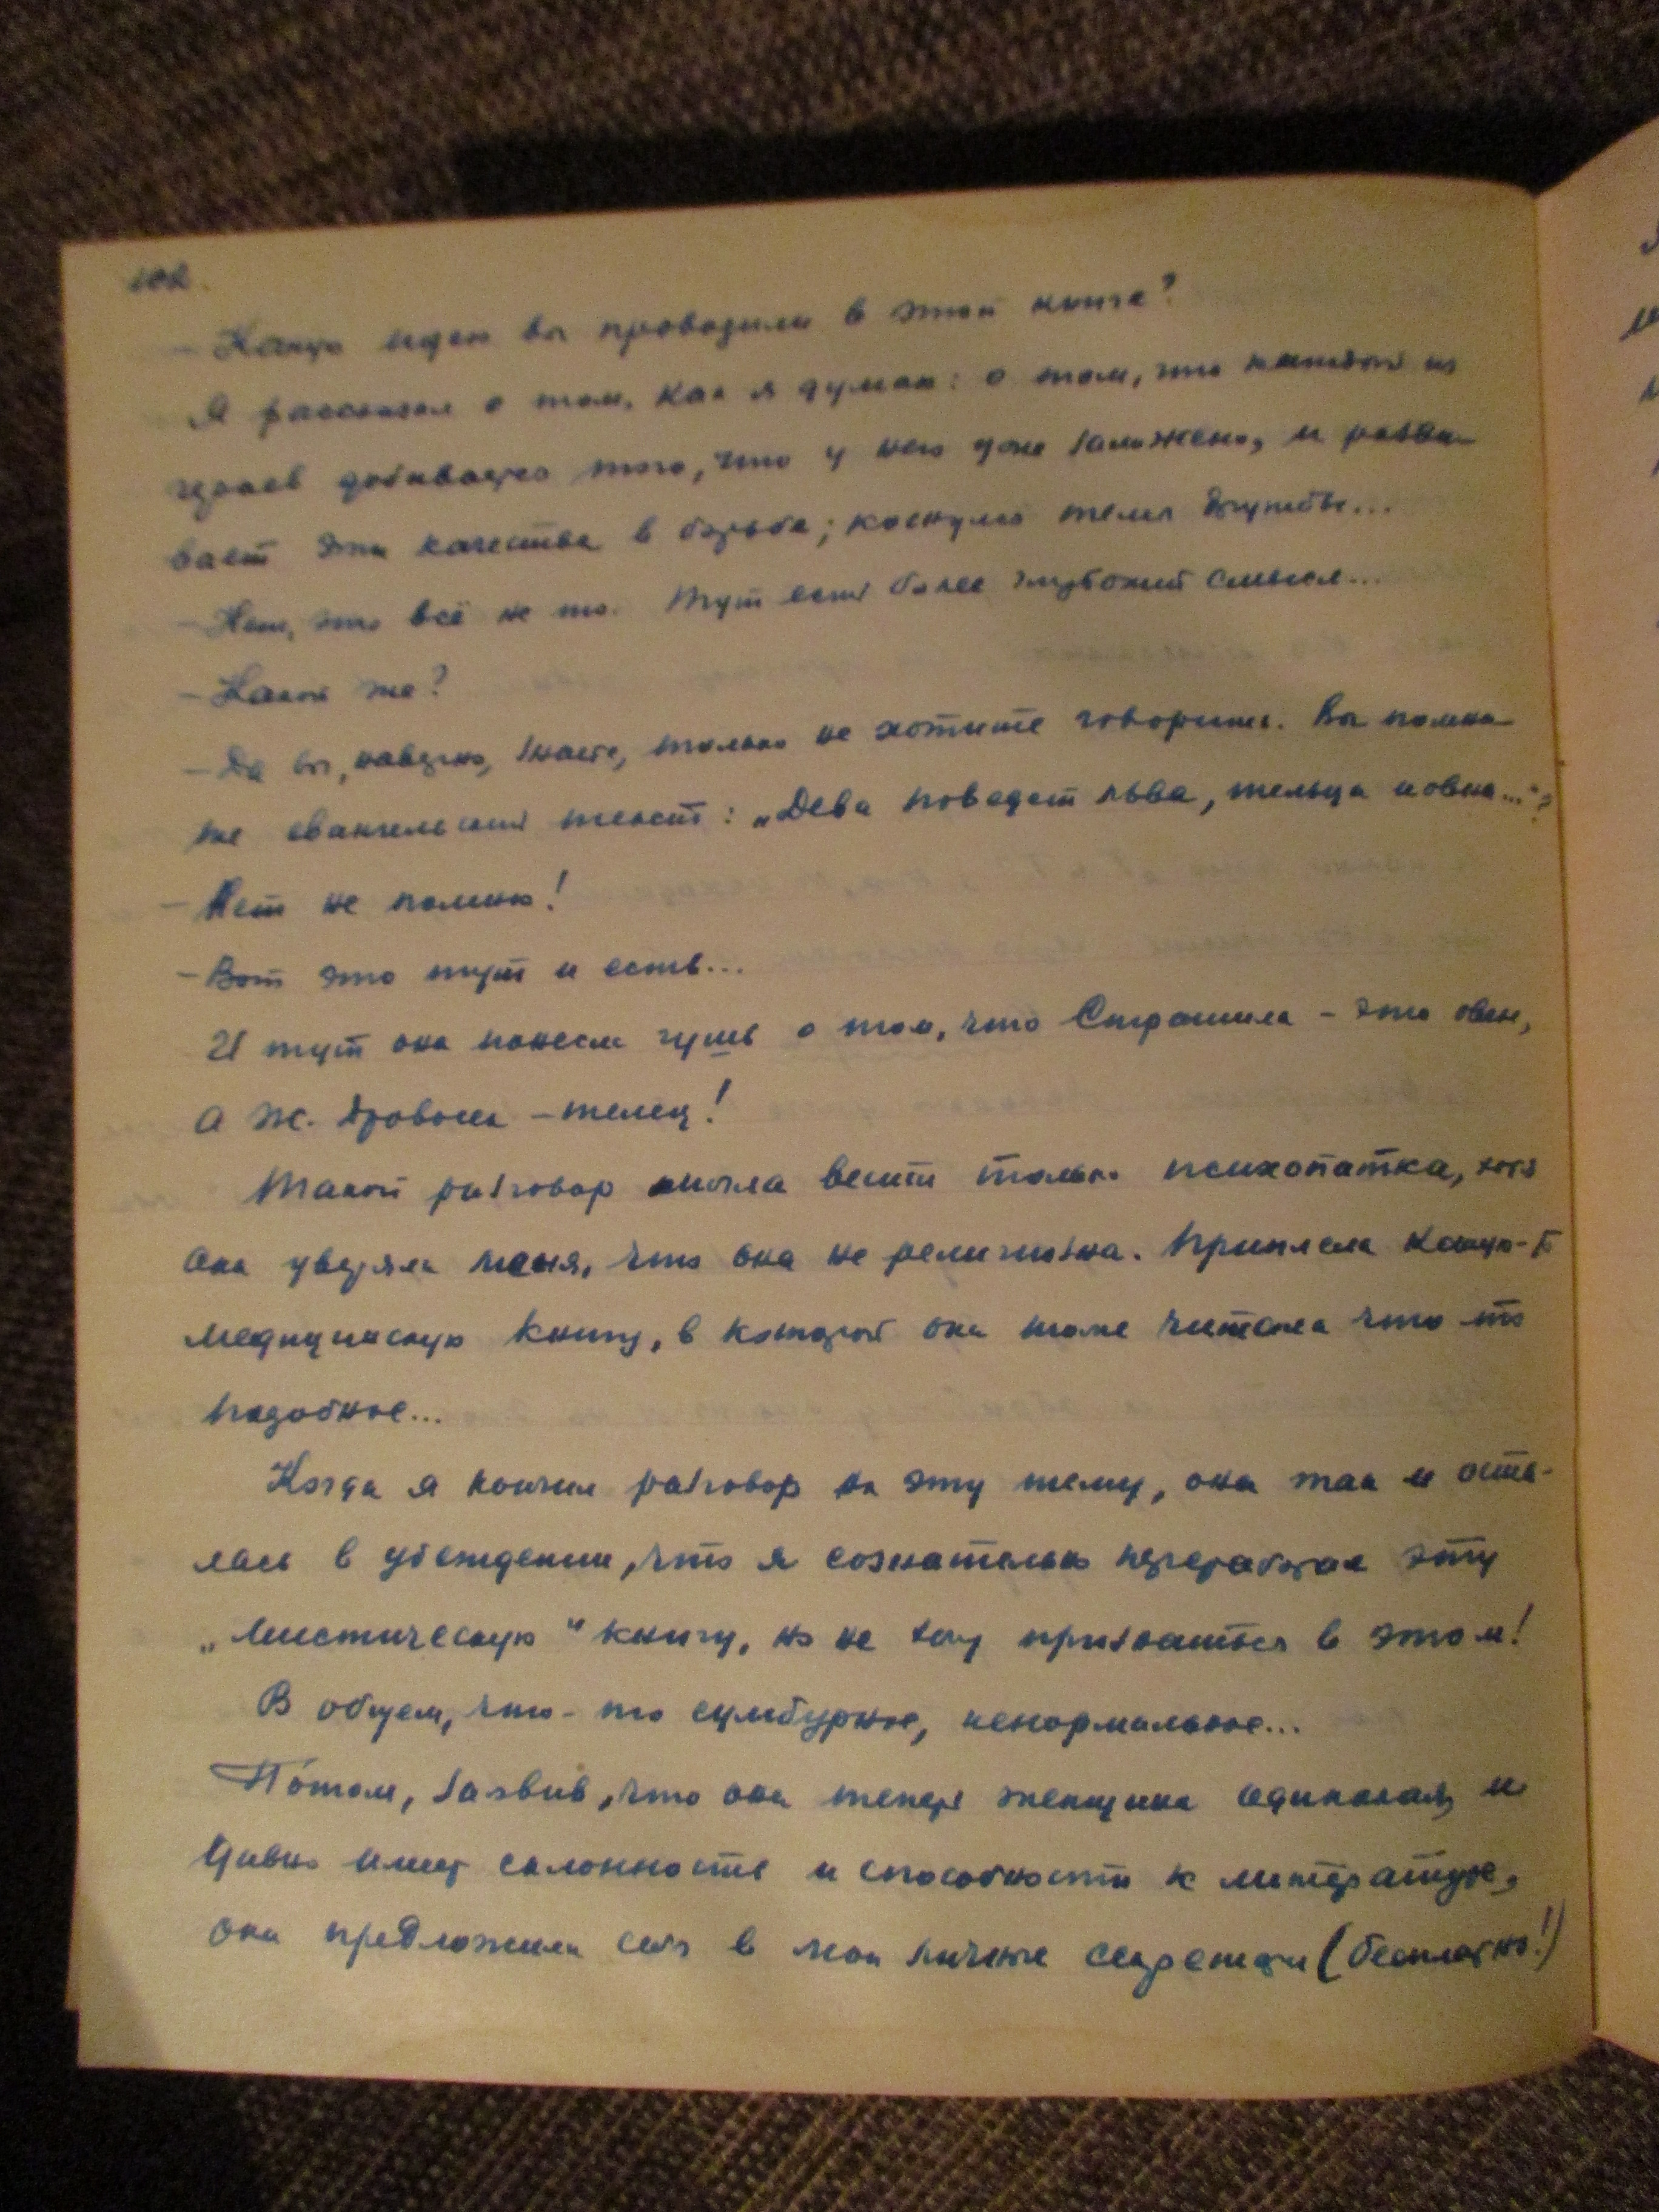 102.
— Какую идею вы проводили в этой книге?
Я рассказал о том, как я думал: о том, что каждый из
героев добивается того, что у него уже заложено, и разви-
вает эти качества в борьбе; коснулся темы дружбы...
— Нет, это всё не то. Тут есть более глубокий смысл...
— Какой же?
— Да вы, наверно, знаете, только не хотите говорить. Вы помни-
те евангельский текст: „Дева поведет льва, тельца и овна..."?
— Нет не помню!
— Вот это тут и есть...
И тут она понесла чушь о том, что Страшила – это овен,
а Ж. Дровосек – телец!
Такой разговор могла вести только психопатка, хотя
она уверяла меня, что она не религиозна. Приплела какую-то
медицинскую книгу, в которой она тоже читала что-то
подобное...
Когда я кончил разговор на эту тему, она так и оста-
лась в убеждении, что я сознательно переработал эту
„мистическую" книгу, но не хочу признаться в этом!
В общем, что-то сумбурное, ненормальное...
Потом, заявив, что она теперь женщина одинокая, и
давно имеет склонность и способности к литературе,
она предложила себя в мои личные секретари (бесплатно!)